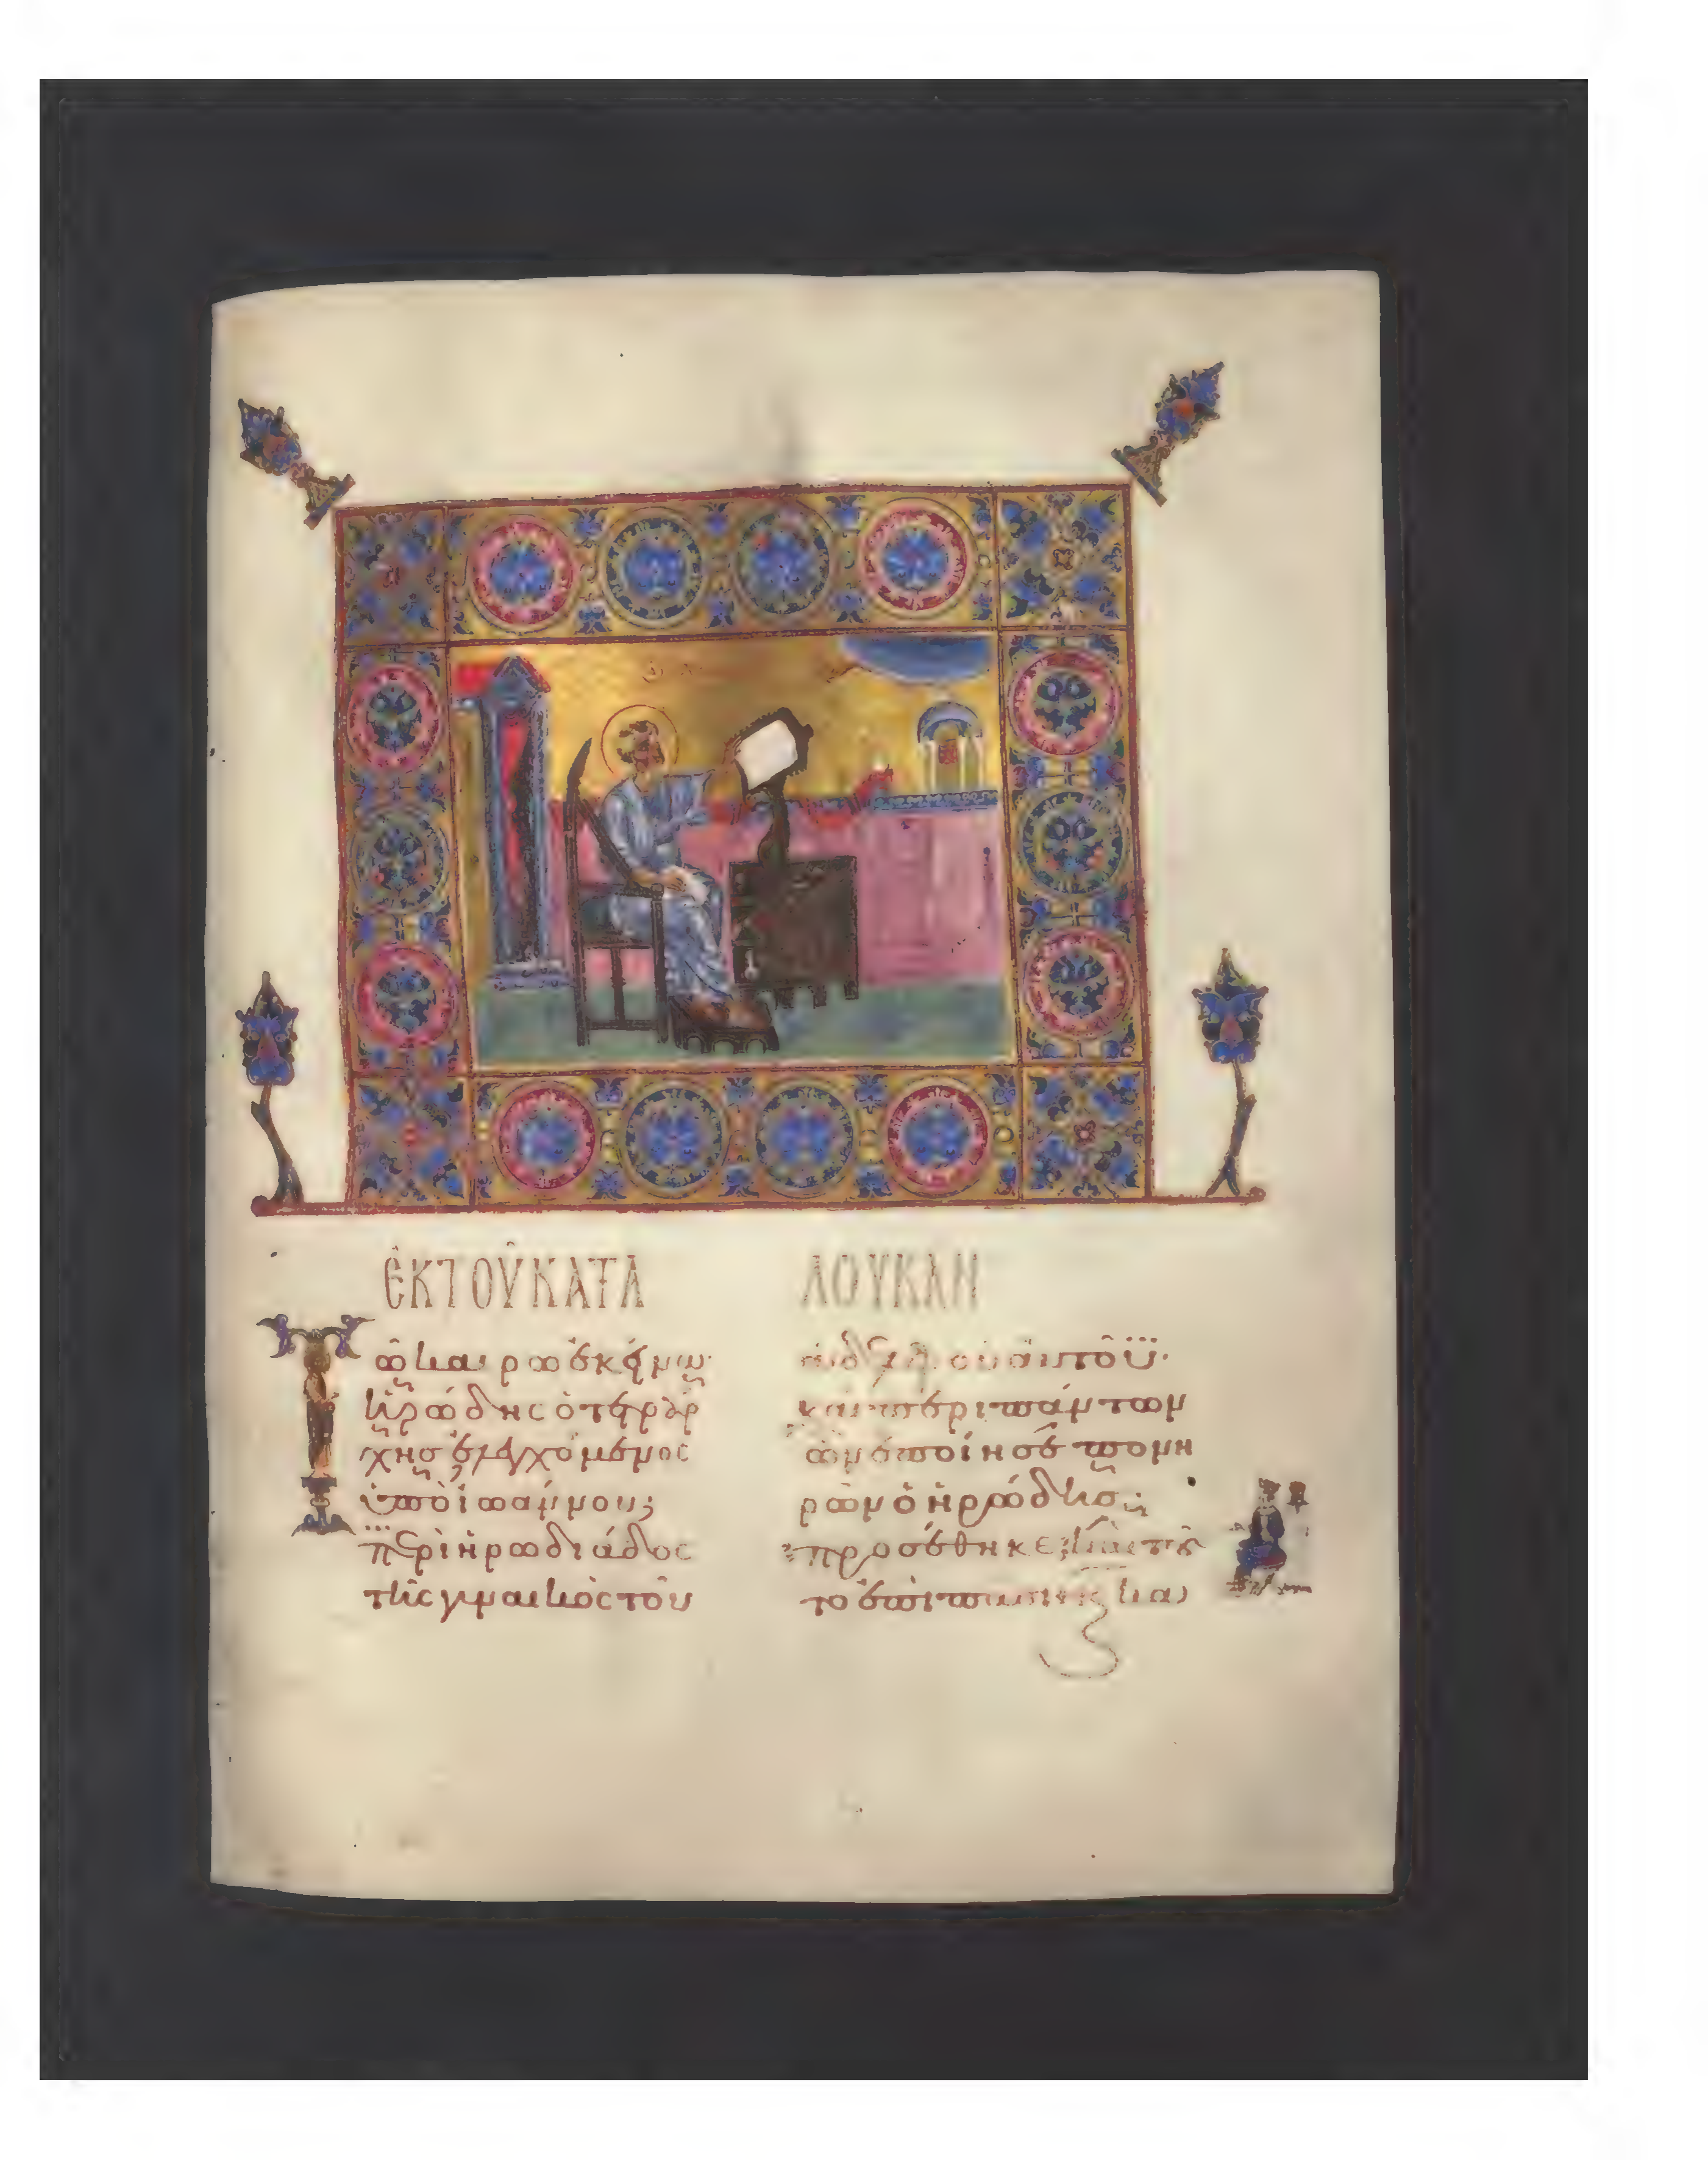 ἐκ τοῦ κατὰ
Τῷ καιρῷ ἐκείνῳ·
ἡρώδης ὁ τετράρ
χης ἐλεγχόμενος
ὑπὸ ἰωάννου,
περὶ ἡρωδιάδος
τῆς γυναικὸς τοῦ
λουκᾶν
ἀδελφοῦ αὐτοῦ·
καὶ περὶ πάντων
ὧν ἐποίησε πονη
ρῶν ὁ ἡρώδης,
προσέθηκε καὶ τοῦ
το ἐπὶ πᾶσιν καὶ